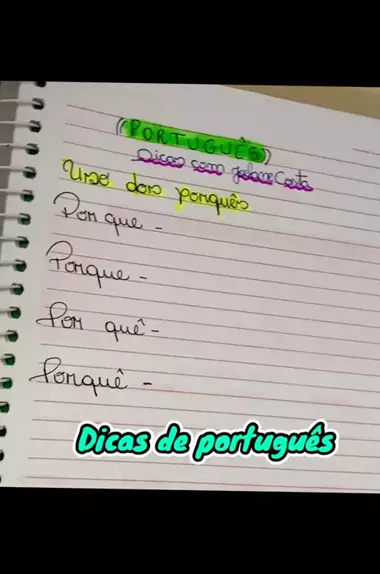 (PORTUGUÊS)
Dicas com Costa
Uso dos porquês
Por que -
Porque -
Por quê -
Porquê -
Dicas de português